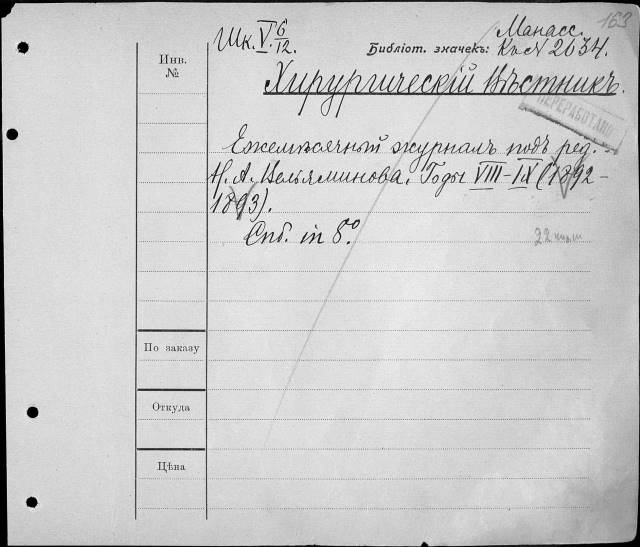 163
Шк. V. 6/12.
Манасс.
Библіот. значекъ: Кн. № 2034.
Инв. №
Хирургическій Вѣстникъ.
ПЕРЕРАБОТАНО
Ежемѣсячный журналъ подъ ред.
Н. А. Вельяминова. Годы VIII–IX (1892–
1893).
Спб. in 8º.
22
По заказу
Откуда
Цѣна